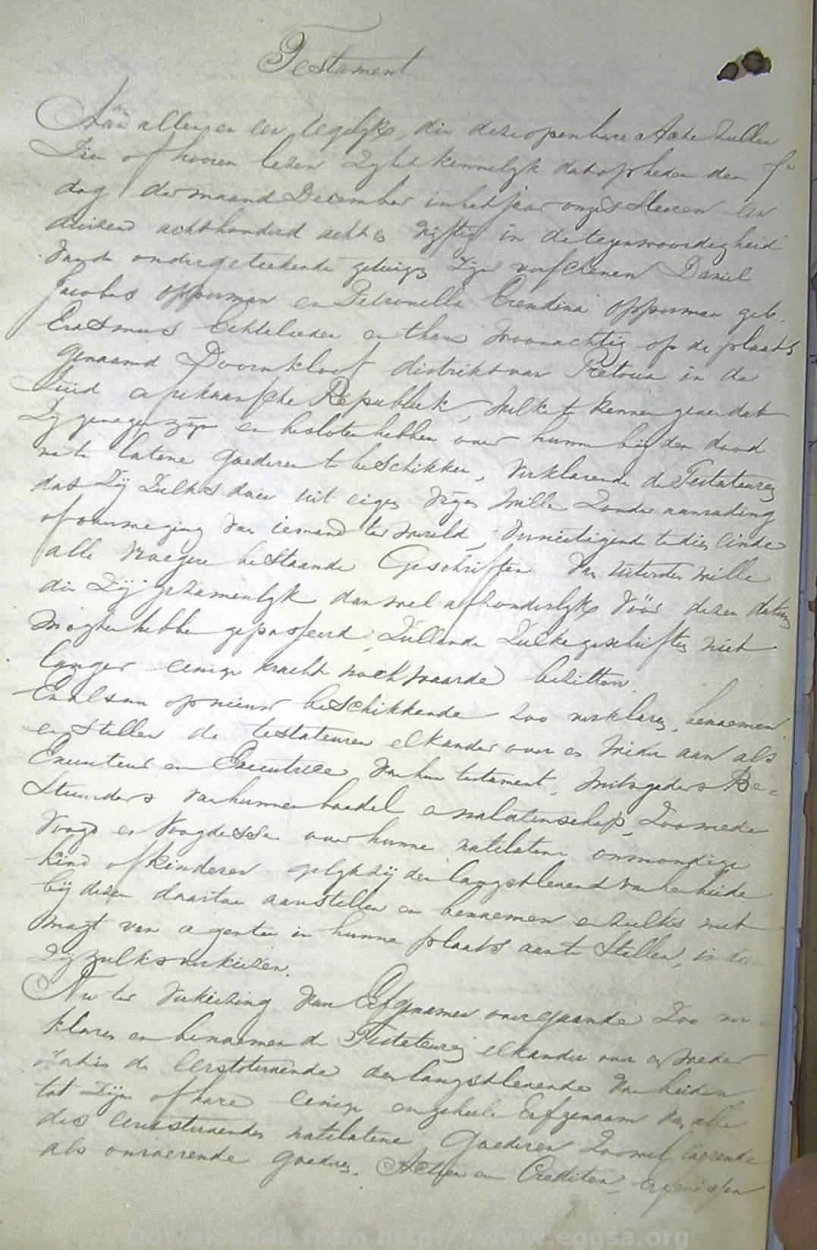 Testament
Aan allen en een iegelijk, die deze openbare Acte zullen
Zien of hooren lezen Zij het kennelyk dat op heden den
dag der maand December in het jaar onzes Heeren een
duizend achthonderd acht en Vijftig in de tegenwoordigheid
van de ondergeteekende getuigen Zijn verschenen Daniel
Jacobus Opperman en Petronella Opperman geb.
Erasmus Echtelieden en thans woonachtig op de plaats
genaamd Doornkloof distrikt van Pretoria in de
Zuid Afrikaansche Republiek, welke te kennen geven dat
Zij genegen zijn en besloten hebben over hunne bij den dood
na te latene goederen te beschikken, Verklarende de Testateuren
dat Zij Zulks doen uit eigen vrijen wille Zonder aanrading
of van iemand ter wereld, Vernietigend te dien einde
alle vroegere bestaande Geschriften van uitersten wille
die Zij gezamenlyk dan wel afzonderlyk vóór dezen datum
mogten hebben gepasseerd, Zullende Zulke geschriften niet
langer eenige kracht noch waarde bezitten.
En alsnu op nieuw beschikkende Zoo verklaren, benoemen
en stellen de testateuren elkander over en weder aan als
Executeur en Executrice van hun testament, mitsgaders Be=
stuurders van hunnen boedel en nalatenschap, Zoomede
Voogd en Voogdesse over hunne natelatene onmondige
kind of kinderen gelyk zij den langstlevend van hen beide
bij dezen daartoe aanstellen en benoemen en zulks met
magt van agenten in hunne plaats aan te Stellen, indien
Zij zulks verkiezen.
Nu ter Verkiezing van Erfgenamen overgaande Zoo ver=
klaren en benoemen de Testateuren elkander over en weder
de Eerststervende den langstlevende van beiden
tot Zijn of hare eenige en geheele Erfgenaam van alle
des eerststervendes natelatene Goederen Zoowel roerende
als onroerende goederen, Actien en Crediten,